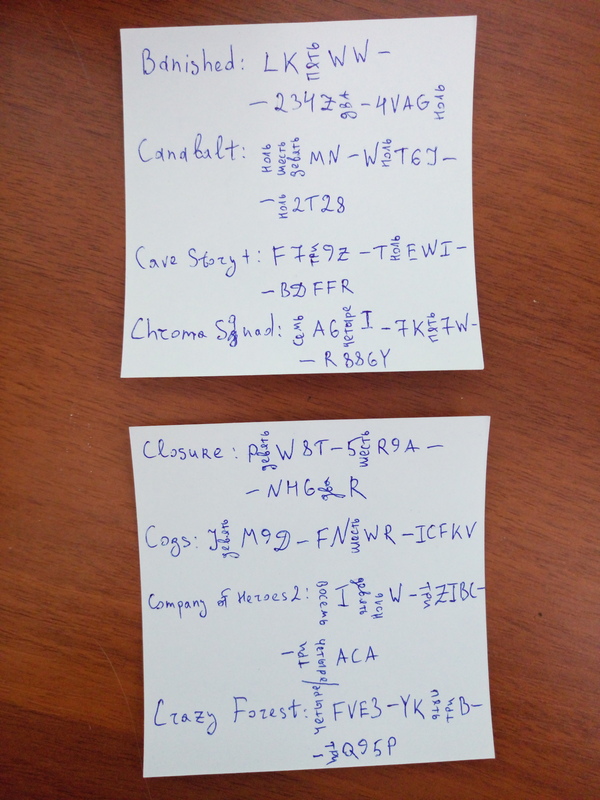 Banished: LK пять WW -
- 234Z два - 4VAG ноль
Canabalt: ноль шесть девять MN - W ноль T6J -
- ноль 2T28
Cave Story+: F7 три 9Z - T ноль EWI -
- BDFFR
Chroma Squad: семь AG четыре I - 7K пять 7W -
- R88GY
Closure: P девять W8T - 5 шесть R9A -
- NHG два R
Cogs: J девять M9D - FN шесть WR - ICFKV
Company of Heroes 2: восемь I девять ноль W - три ZIBC -
- три четыре ACA
Crazy Forest: четыре FVE3 - YK пять три B -
- три Q95P